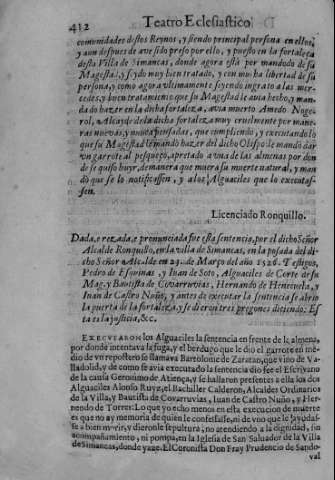 412 Teatro Eclesiastico
comunidades destos Reynos, y siendo principal persona en ellos,
y aun despues de ave sido preso por ello, y puesto en la fortaleza
desta Villa de Simancas, donde agora està por mandodo de su
Magestad, y seydo muy bien tratado, y con mucha libertad de su
persona, y como agora ultimamente seyendo ingrato a las mer-
cedes, y buen tratamiento que su Magestad le ava hecho, y manda-
do hazer en la dicha fortaleza, avia muerto Amedo Nogue-
rol, Alcayde de la dicha fortaleza muy cruelmente por mane-
ras nuevas, y muy pensadas, que cumpliendo, y executando lo
que su Magestad le mandò hazer del dicho Obispo le mandò dar
un garrote al pesqueço, apretado a una de las almenas por don
de se quiso huyr, de manera que muera su muerte natural, y man
dò que se lo notificassen, y a los Alguaciles que lo executas-
sen.
Licenciado Ronquillo.
Dada, e rezada, e pronunciada fue esta sentencia, por el dicho Señor
Alcalde Ronquillo, en la villa de Simancas, en la posada del di-
cho Señor Alcalde en 23. de Março del año 1526. Testigos,
Pedro de Esquinas, y Iuan de Soto, Alguaciles de Corte de su
Mag. y Bautista de Covarruvias, Hernando de
Iuan de Castro Nuño, y antes de executar la sentencia se abrio
la puerta de la fortaleza, y se dieron tres pregones diziendo: Es
ta es la justicia, &c.
EXECVTARON los Alguaciles la sentencia en frente de la almena,
por donde intentava la fuga, y el berdugo que le diò el garrote en me-
dio de un repostero se llamava Bartolome de Zaratan, que vino de Va-
lladolid, y de como se avia executado la sentencia diò fee el Escrivano
de la causa Geronimo de Atiença, y se hallaron presentes a ella los dos
Alguaciles Alonso Ruyz, el Bachiller Calderon, Alcaldes Ordinarios
de la Villa, y Bautista de Covarruvias, Iuan de Castro Nuño, y Her-
nendo de Torres: Lo que yo echo menos en esta execucion de muerte
es que no ay memoria de quien le confessasse, ni de uno que le ayudas-
se a bien morir, y dieronle sepultura, no atendiendo a la dignidad, sin
acompañamiento, ni pompa, en la Iglesia de San Salvador de la Villa
de Simancas, donde yaze. El Coronista Don Fray Prudencio de Sando-
val